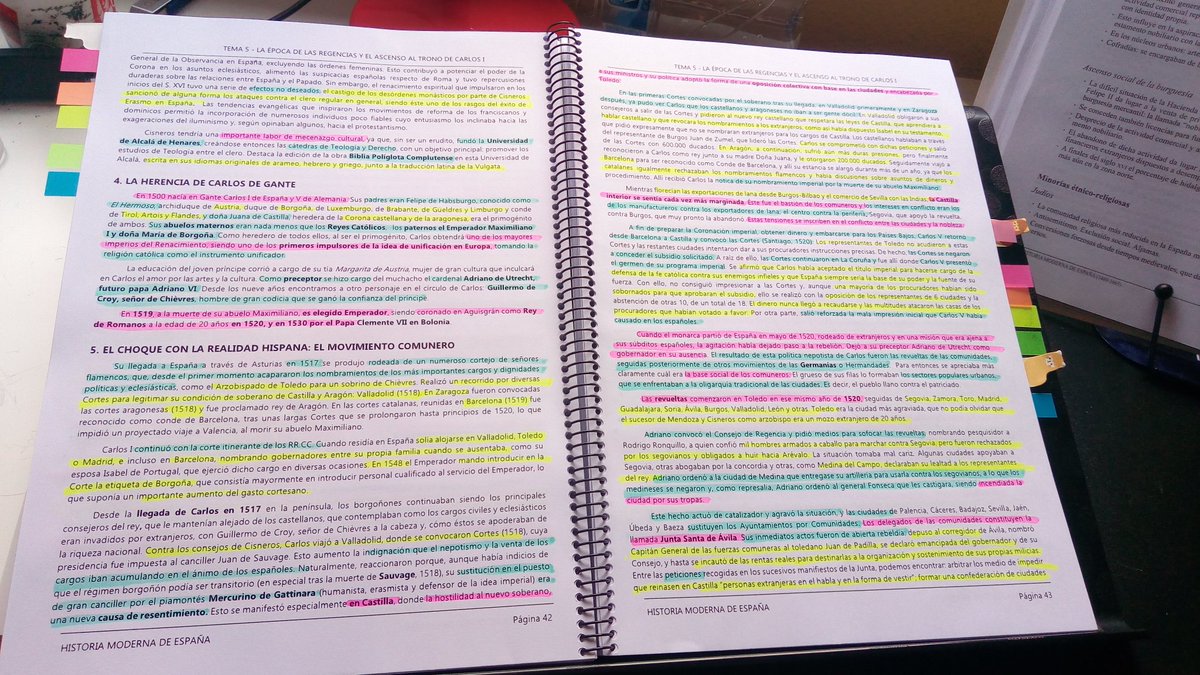 TEMA 5 - LA ÉPOCA DE LAS REGENCIAS Y EL ASCENSO AL TRONO DE CARLOS I
General de la Observancia en España, excluyendo las órdenes femeninas. Esto contribuyó a potenciar el poder de la
Corona en los asuntos eclesiásticos, alimentó las suspicacias españolas respecto de Roma y tuvo repercusiones
duraderas sobre las relaciones entre España y el Papado. Sin embargo, el renacimiento espiritual que impulsaron en los
inicios del S. XVI tuvo una serie de efectos no deseados: el castigo de los desórdenes monásticos por parte de Cisneros
sancionó de alguna forma los ataques contra el clero regular en general, siendo éste uno de los rasgos del éxito de
Erasmo en España. Las tendencias evangélicas que inspiraron los movimientos de reforma de los franciscanos y
dominicos permitió la incorporación de numerosos individuos poco fiables cuyo entusiasmo los inclinaba hacia las
exageraciones del iluminismo y, según opinan algunos, hacia el protestantismo.
Cisneros tendría una importante labor de mecenazgo cultural, ya que, sin ser un erudito, fundó la Universidad
de Alcalá de Henares, creándose entonces las cátedras de Teología y Derecho, con un objetivo principal: promover los
estudios de Teología entre el clero. Destaca la edición de la obra Biblia Políglota Complutense en esta Universidad de
Alcalá, escrita en sus idiomas originales de arameo, hebreo y griego, junto a la traducción latina de la Vulgata.
4. LA HERENCIA DE CARLOS DE GANTE
En 1500 nacía en Gante Carlos I de España y V de Alemania. Sus padres eran Felipe de Habsburgo, conocido como
El Hermoso, archiduque de Austria, duque de Borgoña, de Luxemburgo, de Brabante, de Gueldres y Limburgo y conde
de Tirol, Artois y Flandes, y doña Juana de Castilla, heredera de la Corona castellana y de la aragonesa, era el primogénito
de ambos. Sus abuelos maternos eran nada menos que los Reyes Católicos, los paternos el Emperador Maximiliano
I y doña María de Borgoña. Como heredero de todos ellos, al ser el primogénito, Carlos obtendrá uno de los mayores
imperios del Renacimiento, siendo uno de los primeros impulsores de la idea de unificación en Europa, tomando la
religión católica como el instrumento unificador.
La educación del joven príncipe corrió a cargo de su tía Margarita de Austria, mujer de gran cultura que inculcará
en Carlos el amor por las artes y la cultura. Como preceptor se hizo cargo del mucho el cardenal Adriano de Utrecht,
futuro papa Adriano VI. Desde los nueve años encontramos a otro personaje en el círculo de Carlos: Guillermo de
Croy, señor de Chièvres, hombre de gran codicia que se ganó la confianza del príncipe.
En 1519, a la muerte de su abuelo Maximiliano, es elegido Emperador, siendo coronado en Aquisgrán como Rey
de Romanos a la edad de 20 años en 1520, y en 1530 por el Papa Clemente VII en Bolonia.
5. EL CHOQUE CON LA REALIDAD HISPANA: EL MOVIMIENTO COMUNERO
Su llegada a España a través de Asturias en 1517 se produjo rodeada de un numeroso cortejo de señores
flamencos, que, desde el primer momento acapararon los nombramientos de los más importantes cargos y dignidades
políticas y eclesiásticas, como el Arzobispado de Toledo para un sobrino de Chièvres. Realizó un recorrido por diversas
Cortes para legitimar su condición de soberano de Castilla y Aragón: Valladolid (1518). En Zaragoza fueron convocadas
las cortes aragonesas (1518) y fue proclamado rey de Aragón. En las cortes catalanas, reunidas en Barcelona (1519) fue
reconocido como conde de Barcelona, tras unas largas Cortes que se prolongaron hasta principios de 1520, lo que
impidió un proyectado viaje a Valencia, al morir su abuelo Maximiliano.
Carlos I continuó con la corte itinerante de los RR.CC. Cuando residía en España solía alojarse en Valladolid, Toledo
o Madrid, e incluso en Barcelona, nombrando gobernadores entre su propia familia cuando se ausentaba, como su
esposa Isabel de Portugal, que ejerció dicho cargo en diversas ocasiones. En 1548 el Emperador mando introducir en la
Corte la etiqueta de Borgoña, que consistía mayormente en introducir personal cualificado al servicio del Emperador, lo
que suponía un importante aumento del gasto cortesano.
Desde la llegada de Carlos en 1517 en la península, los borgoñones continuaban siendo los principales
consejeros del rey, que le mantenían alejado de los castellanos, que contemplaban como los cargos civiles y eclesiásticos
eran invadidos por extranjeros, con Guillermo de Croy, señor de Chièvres a la cabeza, y, cómo éstos se apoderaban de
la riqueza nacional. Contra los consejos de Cisneros, Carlos viajó a Valladolid, donde se convocaron Cortes (1518), cuya
presidencia fue impuesta al canciller Juan de Sauvage. Esto aumento la indignación que el nepotismo y la venta de los
cargos iban acumulando en el ánimo de los españoles. Naturalmente, reaccionaron porque, aunque había indicios de
que el régimen borgoñón podía ser transitorio (en especial tras la muerte de Sauvage, 1518), su sustitución en el puesto
de gran canciller por el piamontés Mercurino de Gattinara (humanista, erasmista y defensor de la idea imperial) era
una nueva causa de resentimiento. Esto se manifestó especialmente en Castilla, donde la hostilidad al nuevo soberano,
Página 42
HISTORIA MODERNA DE ESPAÑA
TEMA 5 - LA ÉPOCA DE LAS REGENCIAS Y EL ASCENSO AL TRONO DE CARLOS I
a sus ministros y su política adoptó la forma de una oposición colectiva con base en las ciudades y encabezada por
Toledo.
En las primeras Cortes convocadas por el soberano tras su llegada, en Valladolid primeramente y en Zaragoza
después, ya pudo ver Carlos que los castellanos y aragoneses no iban a ser gente dócil. En Valladolid obligaron a sus
consejeros a salir de las Cortes y pidieron al nuevo rey castellano que respetara las leyes de Castilla, que aprendiera a
hablar castellano y que revocara los nombramientos a los extranjeros, como así había dispuesto Isabel en su testamento,
que pidió expresamente que no se nombraran extranjeros para los cargos de Castilla. Los castellanos hablaban a través
del representante de Burgos Juan de Zumel, que lideró las Cortes. Carlos se comprometió con dichas peticiones y salió
de las Cortes con 600.000 ducados. En Aragón, a continuación, sufrió aún más duras presiones, pero finalmente
reconocieron a Carlos como rey junto a su madre Doña Juana, y le otorgaron 200.000 ducados. Seguidamente viajó a
Barcelona para ser reconocido como Conde de Barcelona, y allí su estancia se alargó durante más de un año, ya que los
catalanes igualmente rechazaban los nombramientos flamencos y había discusiones sobre asuntos de dineros y
procedimiento. Allí recibió Carlos la notica de su nombramiento imperial por la muerte de su abuelo Maximiliano.
Mientras florecían las exportaciones de lana desde Burgos-Bilbao y el comercio de Sevilla con las Indias, la Castilla
interior se sentía cada vez más marginada. Éste fue el bastión de los comuneros y los intereses en conflicto eran los
de los manufactureros contra los exportadores de lana; el centro contra la periferia; Segovia, que apoyó la revuelta,
contra Burgos, que muy pronto la abandonó. Estas tensiones se inscriben en el conflicto entre las ciudades y la nobleza.
A fin de preparar la Coronación imperial, obtener dinero y embarcarse para los Países Bajos, Carlos V retornó
desde Barcelona a Castilla y convocó las Cortes (Santiago, 1520). Los representantes de Toledo no acudieron a estas
Cortes y las restantes ciudades intentaron dar a sus procuradores instrucciones precisas. De hecho, las Cortes se negaron
a conceder el subsidio solicitado. A raíz de ello, las Cortes continuaron en La Coruña y fue allí donde Carlos V presentó
el germen de su programa imperial. Se afirmó que Carlos había aceptado el título imperial para hacerse cargo de la
defensa de la fe católica contra sus enemigos infieles y que España siempre sería la base de su poder y la fuente de su
fuerza. Con ello, no consiguió impresionar a las Cortes y, aunque una mayoría de los procuradores habían sido
sobornados para que aprobaran el subsidio, ello se realizó con la oposición de los representantes de 6 ciudades y la
abstención de otros 10, de un total de 18. El dinero nunca llegó a recaudarse y las multitudes atacaron las casas de los
procuradores que habían votado a favor. Por otra parte, salió reforzada la mala impresión inicial que Carlos V había
causado en los españoles.
Cuando el monarca partió de España en mayo de 1520, rodeado de extranjeros y en una misión que era ajena a
sus súbditos españoles, la agitación había dejado paso a la rebelión. Dejó a su preceptor Adriano de Utrecht como
gobernador en su ausencia. El resultado de esta política nepotista de Carlos fueron las revueltas de las comunidades,
seguidas posteriormente de otros movimientos de las Germanías o Hermandades. Para entonces se apreciaba más
claramente cuál era la base social de los comuneros. El grueso de sus filas lo formaban los sectores populares urbanos,
que se enfrentaba a la oligarquía tradicional de las ciudades. Es decir, el pueblo llano contra el patriciado.
Las revueltas comenzaron en Toledo en ese mismo año de 1520, seguidas de Segovia, Zamora, Toro, Madrid,
Guadalajara, Soria, Ávila, Burgos, Valladolid, León y otras. Toledo era la ciudad más agraviada, que no podía olvidar que
el sucesor de Mendoza y Cisneros como arzobispo era un mozo extranjero de 20 años.
Adriano convocó el Consejo de Regencia y pidió medios para sofocar las revueltas, nombrando pesquisidor a
Rodrigo Ronquillo, a quien confió mil hombres armados a caballo para marchar contra Segovia, pero fueron rechazados
por los segovianos y obligados a huir hacia Arévalo. La situación tomaba mal cariz. Algunas ciudades apoyaban a
Segovia, otras abogaban por la concordia y otras, como Medina del Campo, declaraban su lealtad a los representantes
del rey. Adriano ordenó a la ciudad de Medina que entregase su artillería para usarla contra los segovianos, a lo que los
medineses se negaron y, como represalia, Adriano ordenó al general Fonseca que les castigara, siendo incendiada la
ciudad por sus tropas.
Este hecho actuó de catalizador y agravó la situación, y las ciudades de Palencia, Cáceres, Badajoz, Sevilla, Jaén,
Úbeda y Baeza sustituyen los Ayuntamientos por Comunidades. Los delegados de las comunidades constituyen la
llamada Junta Santa de Ávila. Sus inmediatos actos fueron de abierta rebeldía: depuso al corregidor de Ávila, nombró
Capitán General de las fuerzas comuneras al toledano Juan de Padilla, se declaró emancipada del gobernador y de su
Consejo, y hasta se incautó de las rentas reales para destinarlas a la organización y sostenimiento de sus propias milicias.
Entre las peticiones recogidas en los sucesivos manifiestos de la Junta, podemos encontrar: arbitrar los medio de impedir
que reinasen en Castilla "personas extranjeras en el habla y en la forma de vestir"; formar una confederación de ciudades
Página 43
HISTORIA MODERNA DE ESPAÑA
actividad comercial
con identidad propia.
Ascenso social de la burguesía
Minorías étnico-religiosas
Judíos